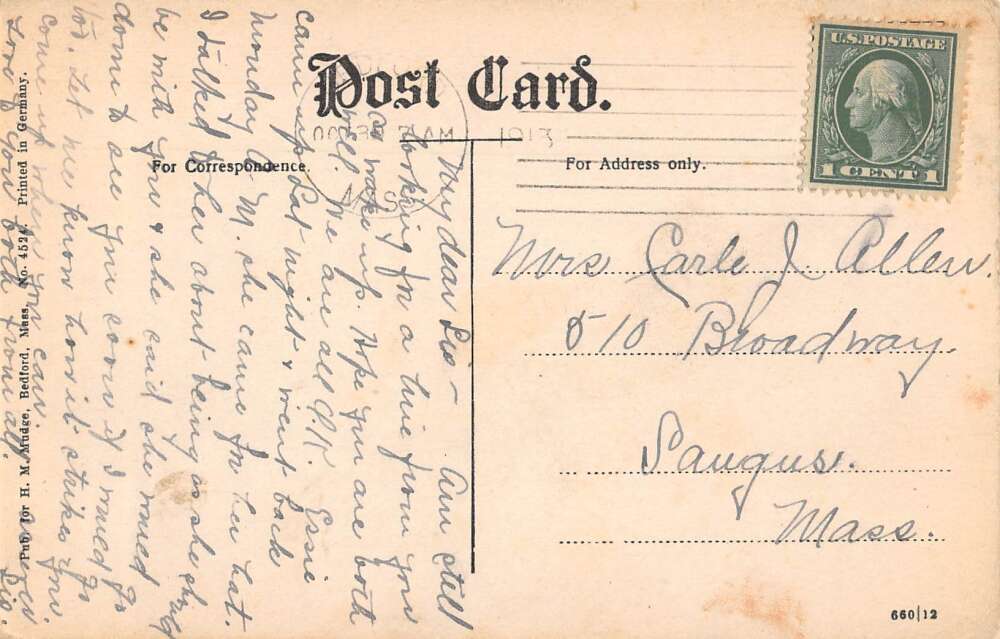 Post Card.
For Correspondence.
For Address only.
U.S. POSTAGE
1 CENT 1
AM 1913
My dear Sis - Am still
looking for a line from you
so wake up. Hope you are both
well. We are all O.K. Essie
came up Sat night & went back
Monday A.M. she came for her hat.
I talked to her about being as she
be with you & she said she would
down to see you soon if I would go
too. Let me know how it strikes you.
come up when you can.
Love to you both from all.
Sis.
Mrs Carle J. Allen.
510 Broadway.
Saugus.
Mass.
Pub. for H. M. Mudge, Bedford, Mass. No. 4524. Printed in Germany.
660|12